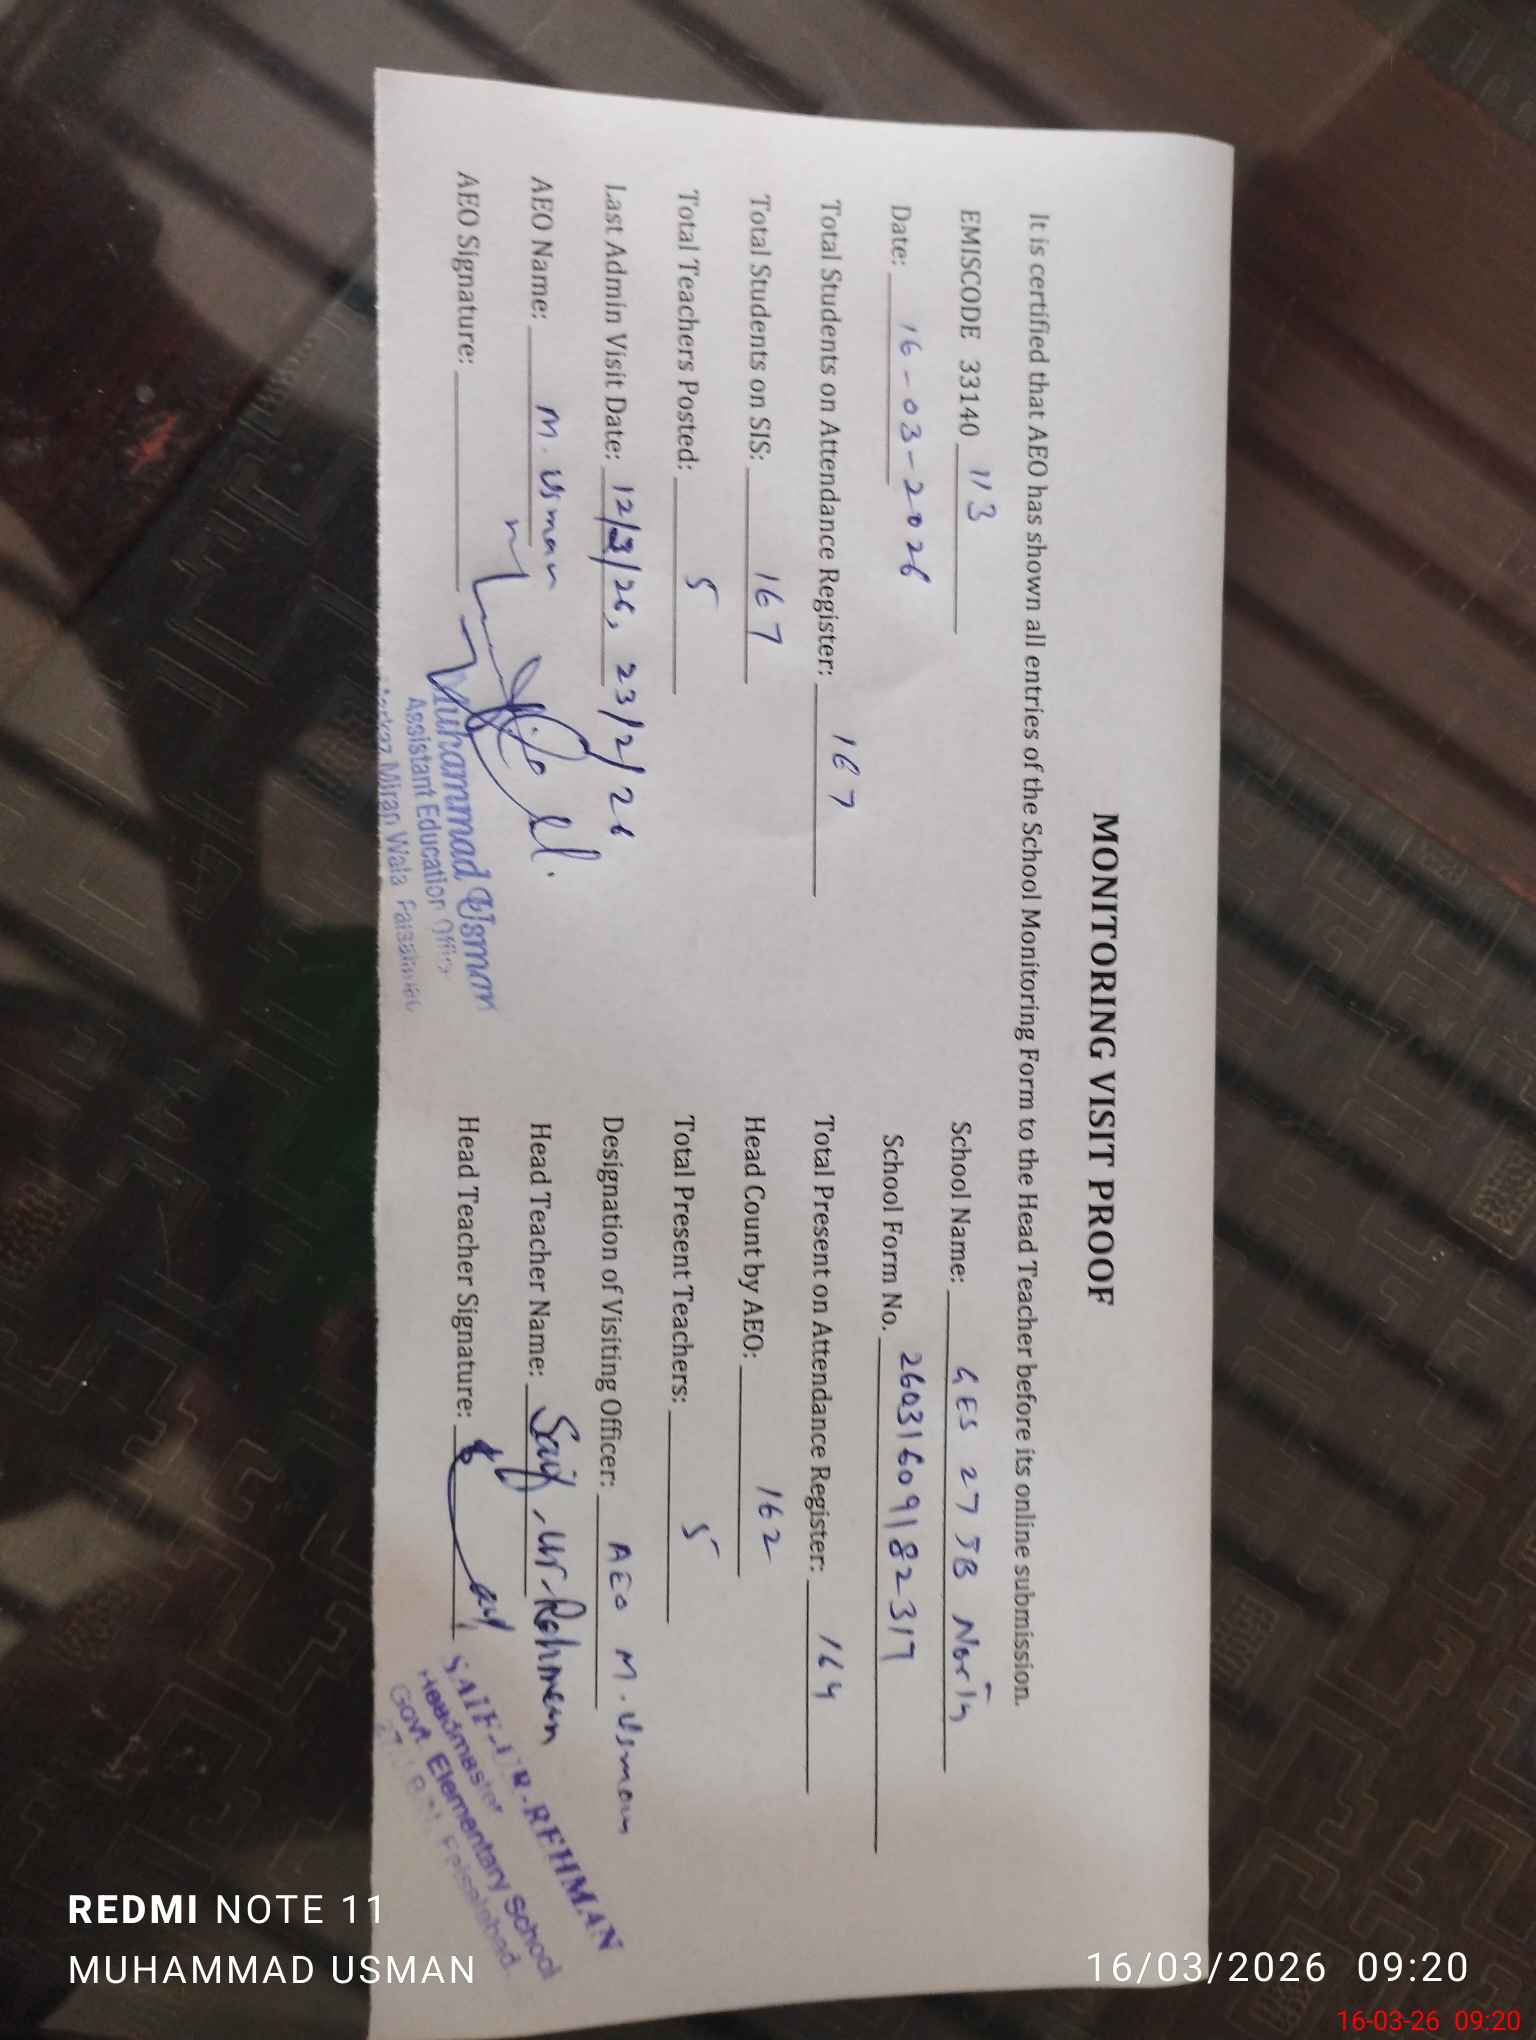 MONITORING VISIT PROOF
It is certified that AEO has shown all entries of the School Monitoring Form to the Head Teacher before its online submission.
EMISCODE 33140 113 School Name: GES 27 JB North
Date: 16-03-2026 School Form No. 26031609182317
Total Students on Attendance Register: 167 Total Present on Attendance Register: 164
Total Students on SIS: 167 Head Count by AEO: 162
Total Teachers Posted: 5 Total Present Teachers: 5
Last Admin Visit Date: 12/3/26, 23/2/26 Designation of Visiting Officer: AEO M. Usman
AEO Name: M. Usman Head Teacher Name: Saif-Ur-Rehman
AEO Signature: Head Teacher Signature:
Muhammad Usman
Assistant Education
Miran Wala Faisalabad
SAIF-UR-REHMAN
Headmaster
Govt. Elementary School
Faisalabad.
REDMI NOTE 11
MUHAMMAD USMAN
16/03/2026 09:20
16-03-26 09:20